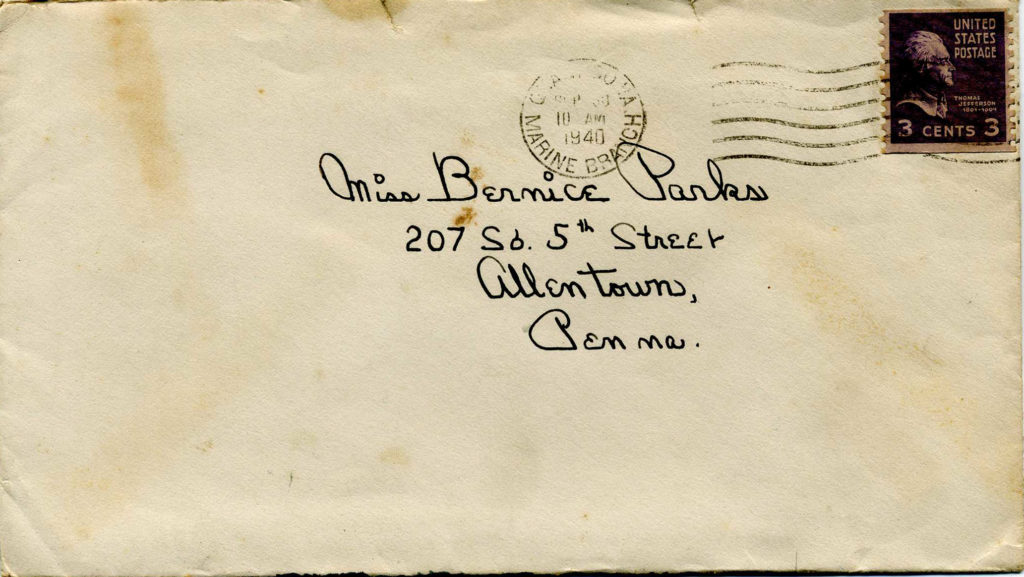 UNITED
STATES
POSTAGE
THOMAS
JEFFERSON
1801-1809
3 CENTS 3
10 AM
1940
MARINE BRANCH
Miss Bernice Parks
207 So. 5th Street
Allentown,
Penna.